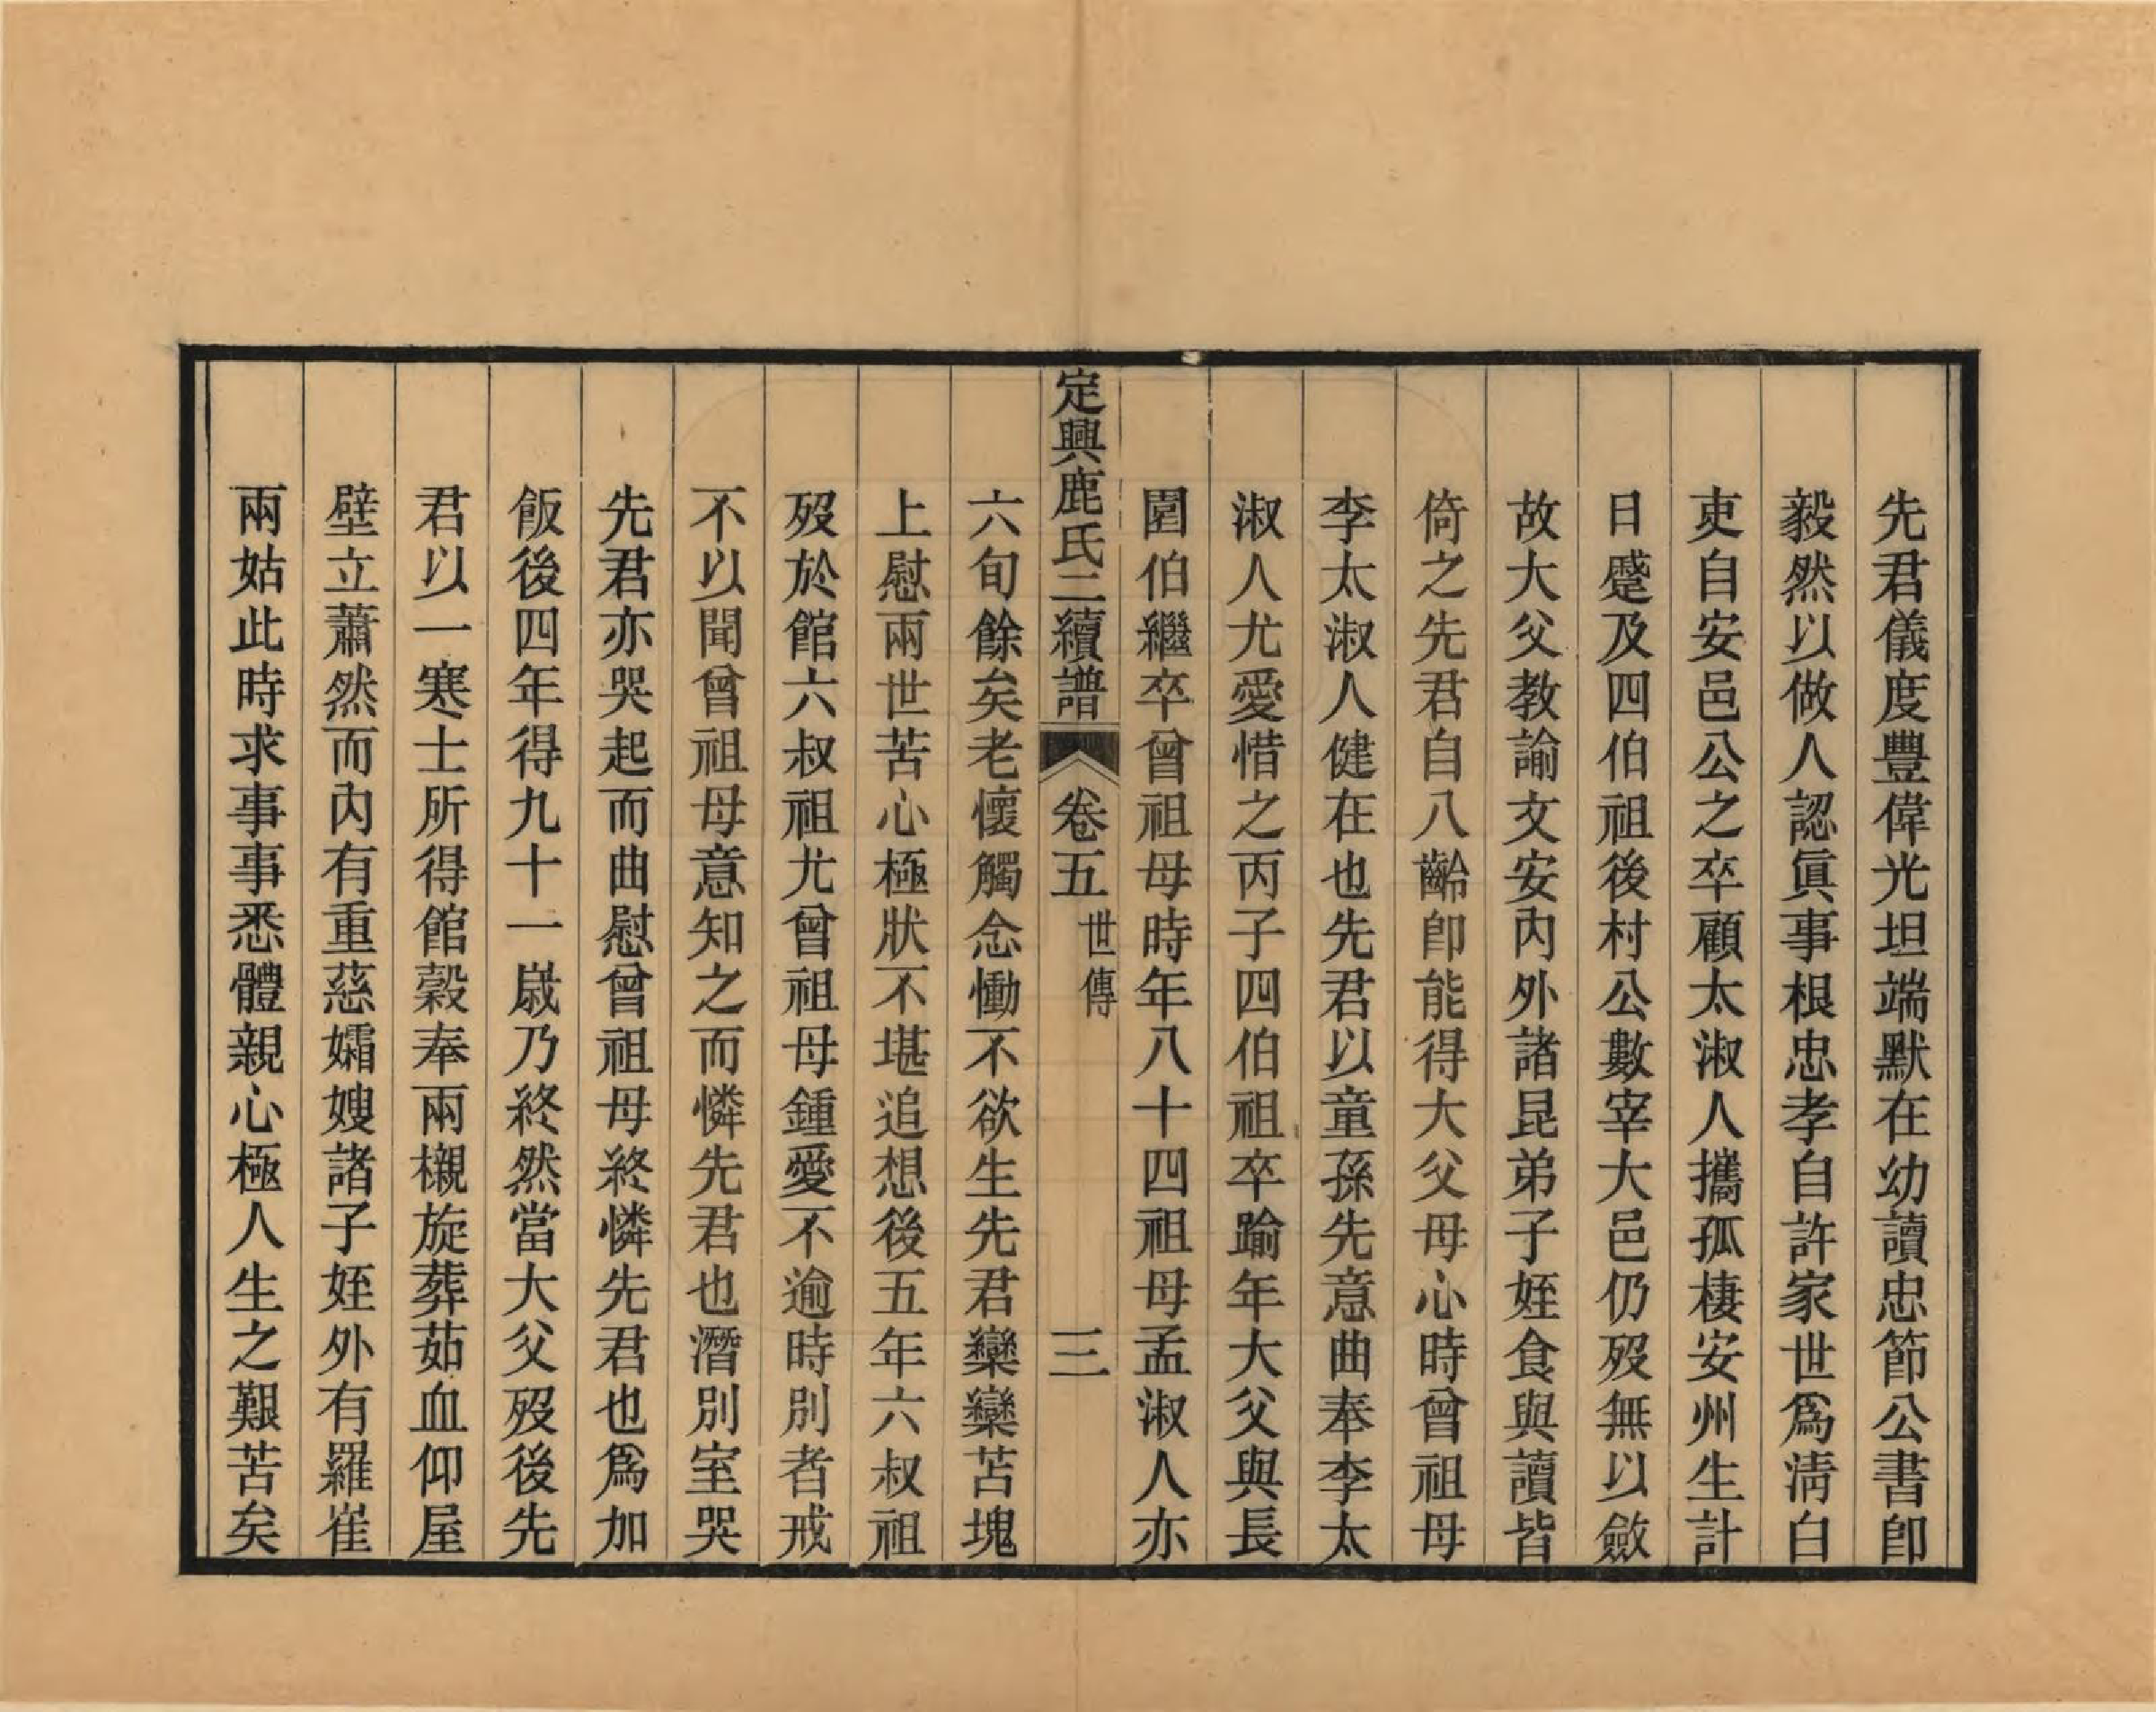 先君儀度豐偉光坦端默在幼讀忠節公書卽
毅然以做人認眞事根忠孝自許家世爲淸白
吏自安邑公之卒顧太淑人攜孤棲安州生計
日蹙及四伯祖後村公數宰大邑仍歿無以斂
故大父教諭文安內外諸昆弟子姪食與讀皆
倚之先君自八齡卽能得大父母心時曾祖母
李太淑人健在也先君以童孫先意曲奉李太
淑人尤愛惜之丙子四伯祖卒踰年大父與長
圉伯繼卒曾祖母時年八十四祖母孟淑人亦
定興鹿氏二續譜 卷五 世傳 三
六旬餘矣老懷觸念慟不欲生先君欒欒苫塊
上慰兩世苦心極狀不堪追想後五年六叔祖
歿於館六叔祖尤曾祖母鍾愛不逾時別者戒
不以聞曾祖母意知之而憐先君也潛別室哭
先君亦哭起而曲慰曾祖母終憐先君也爲加
飯後四年得九十一歲乃終然當大父歿後先
君以一寒士所得館穀奉兩櫬旋葬茹血仰屋
壁立蕭然而內有重慈孀嫂諸子姪外有羅崔
兩姑此時求事事悉體親心極人生之艱苦矣